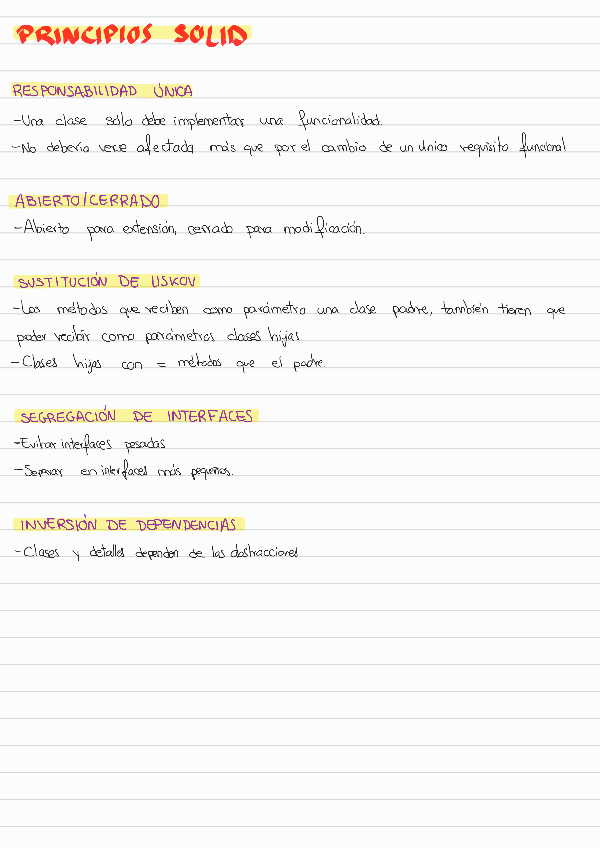 PRINCIPIOS SOLID
RESPONSABILIDAD ÚNICA
-Una clase sólo debe implementar una funcionalidad.
-No debería verse afectada más que por el cambio de un único requisito funcional
ABIERTO/CERRADO
-Abierto para extensión, cerrado para modificación.
SUSTITUCIÓN DE LISKOV
-Los métodos que reciben como parámetro una clase padre, también tienen que
poder recibir como parámetros clases hijas.
-Clases hijas con = métodos que el padre.
SEGREGACIÓN DE INTERFACES
-Evitar interfaces pesadas
-Separar en interfaces más pequeñas.
INVERSIÓN DE DEPENDENCIAS
-Clases y detalles dependen de las abstracciones